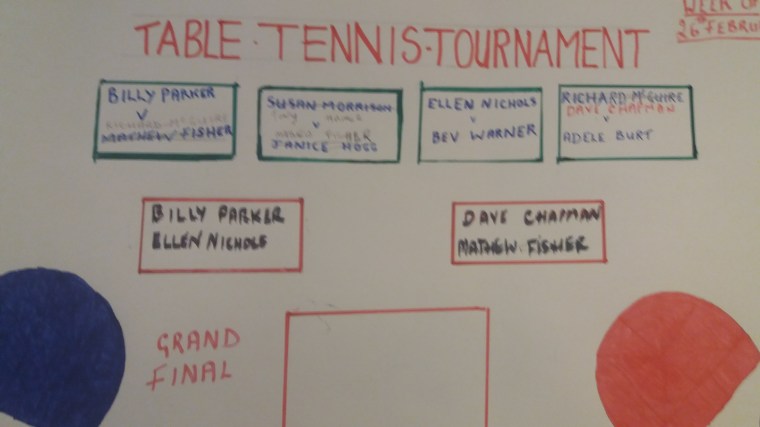 WEEK OF
26th FEBRU
TABLE · TENNIS · TOURNAMENT
BILLY PARKER
V
RICHARD McGUIRE
MATHEW FISHER
SUSAN MORRISON
V
FISHER
JANICE HOGG
ELLEN NICHOLS
V
BEV WARNER
RICHARD McGUIRE
DAVE CHAPMAN
V
ADELE BURT
BILLY PARKER
ELLEN NICHOLS
DAVE CHAPMAN
MATHEW FISHER
GRAND
FINAL